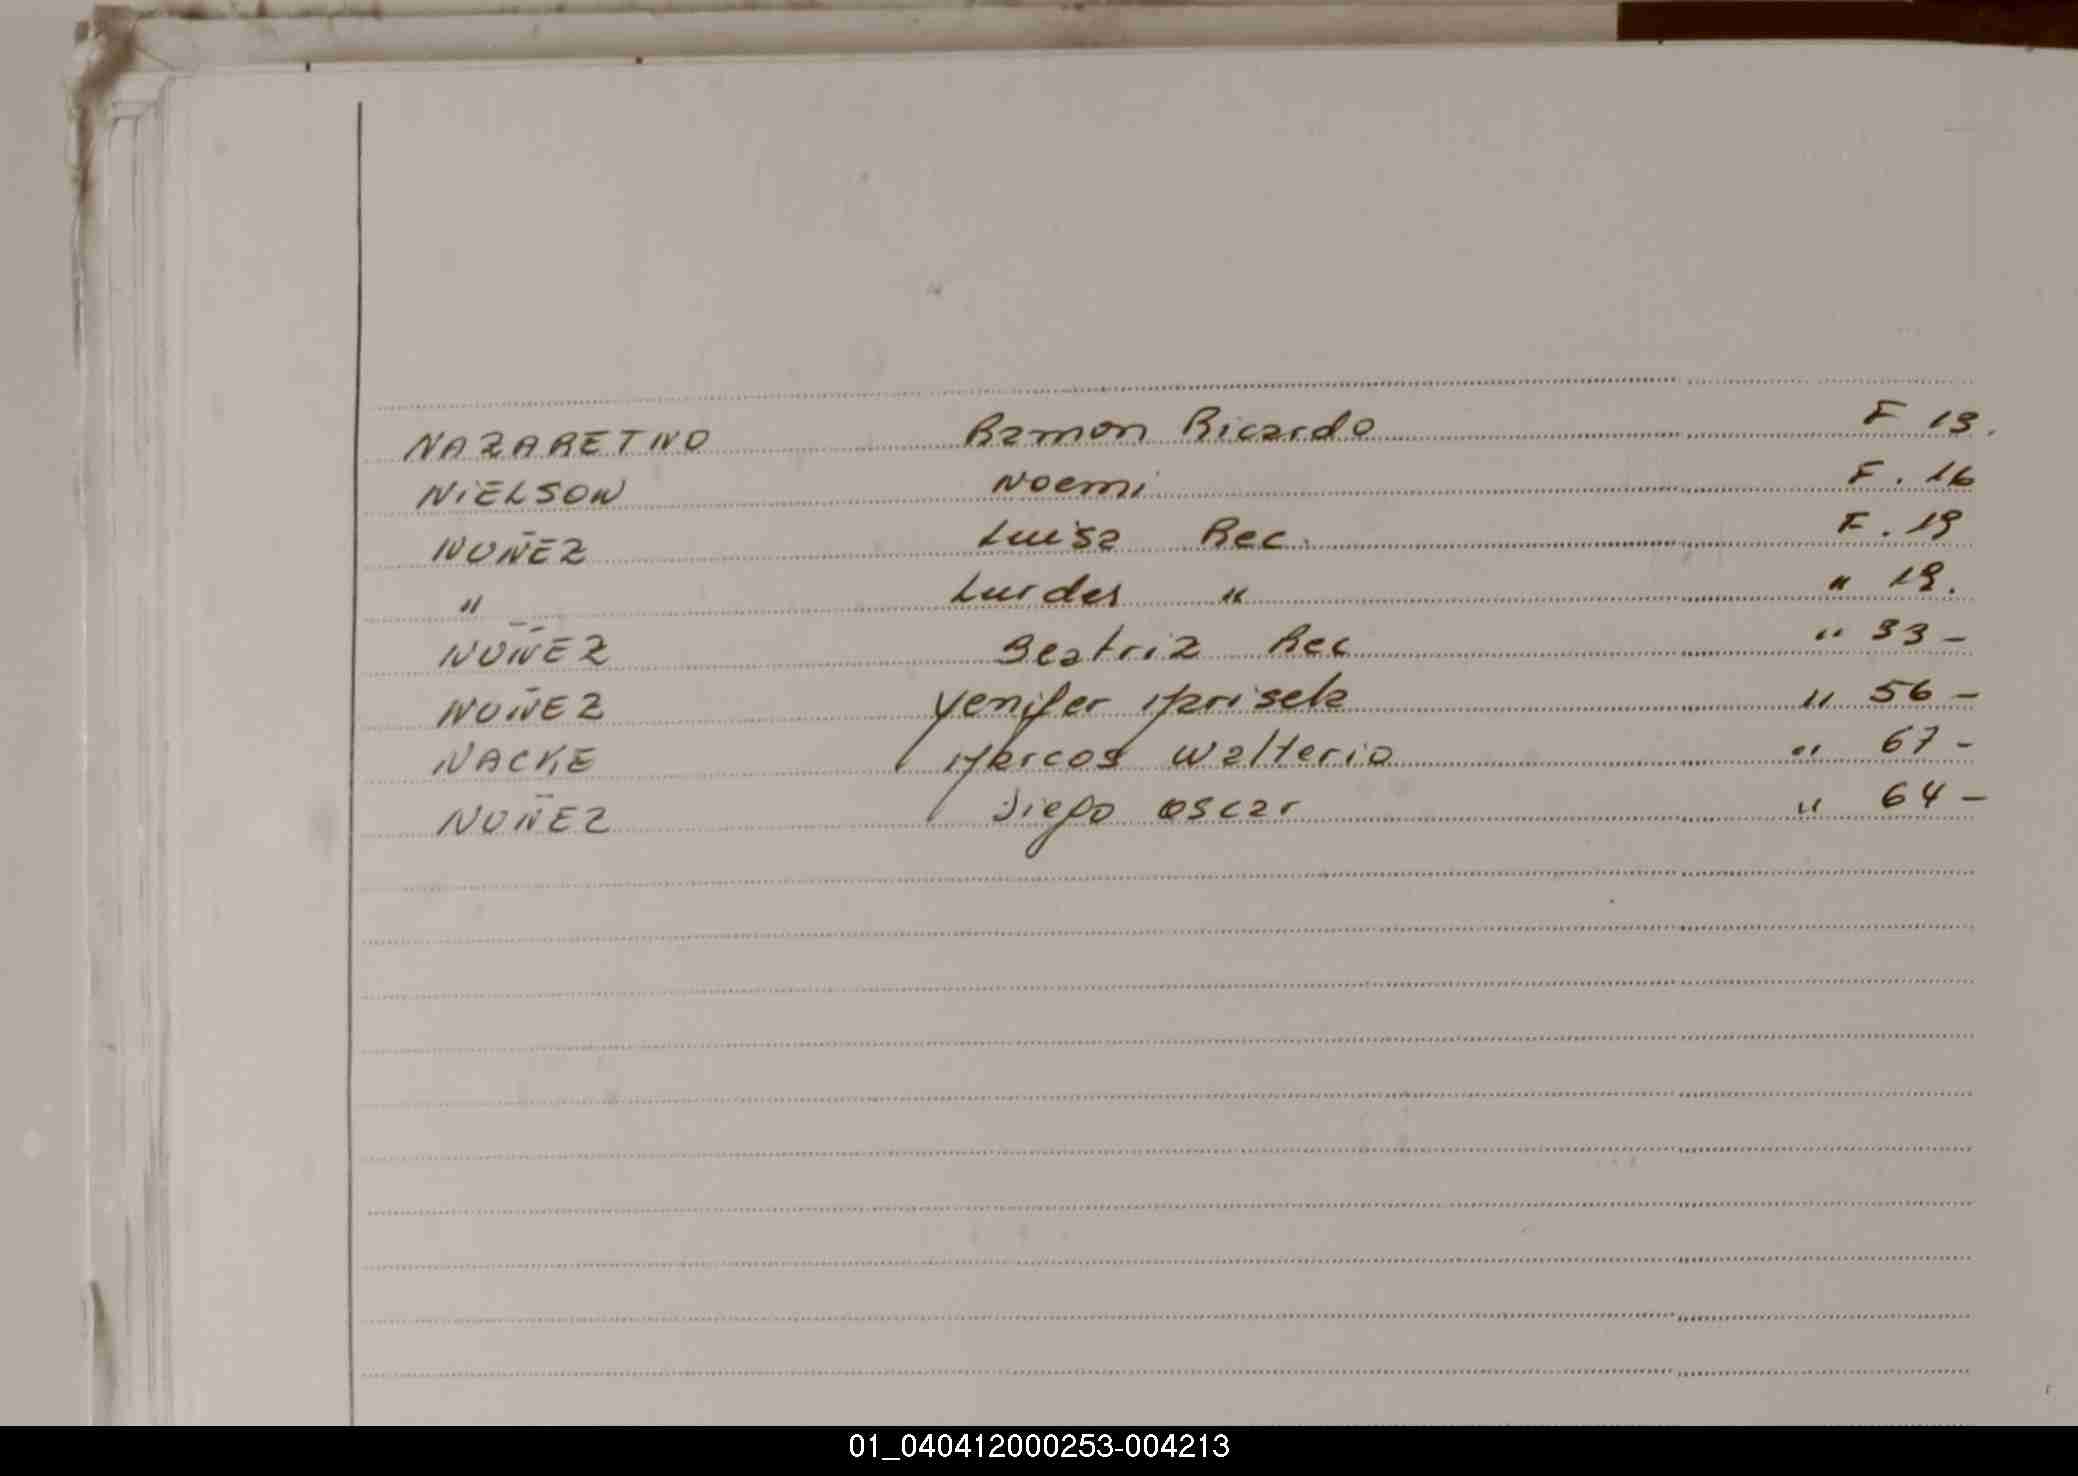 NAZARETNO Ramon Ricardo F 19.
NiELSON Noemi F. 16
NUÑEZ Luisa Rec. F. 19
" Lurdes " " 19.
NUÑEZ Beatriz Rec " 33 -
NUÑEZ Yenifer Marisela " 56 -
NACKE Marcos Walterio " 67 -
NUÑEZ Diego Oscar " 64 -
01_040412000253-004213